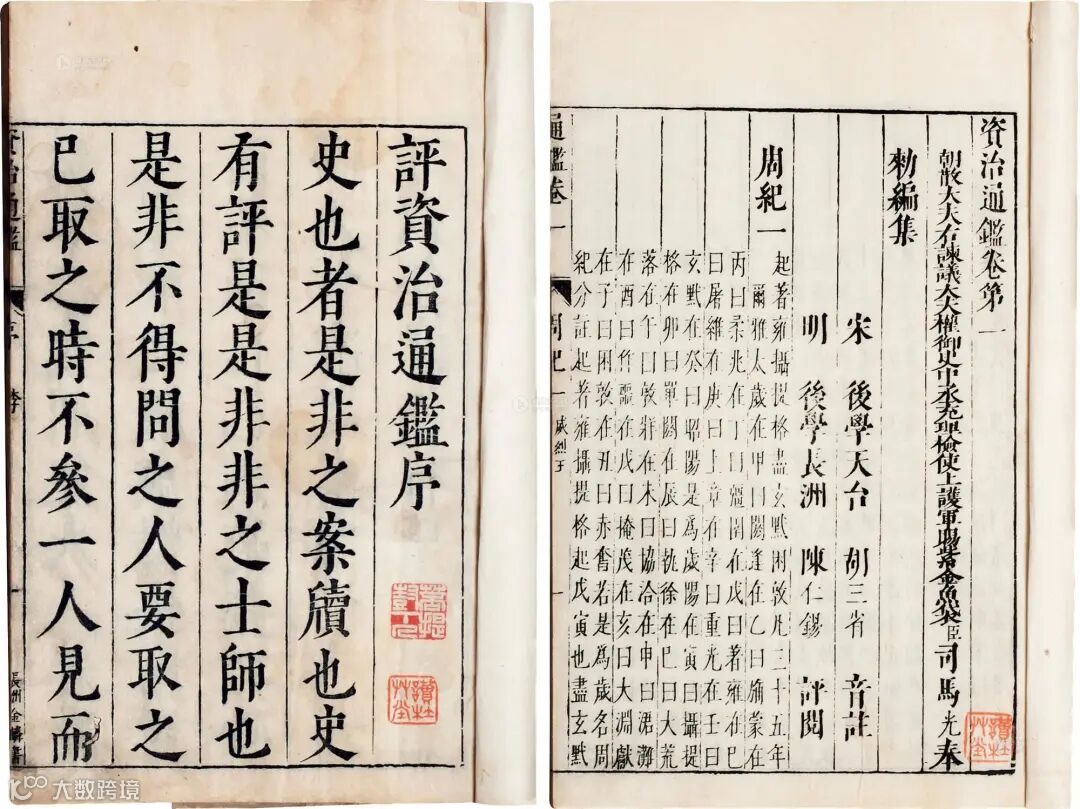 評資治通鑑序
史也者是非之案牘也史
有評是是非非之士師也
是非不得問之人要取之
已取之時不參一人見而
資治通鑑 序
長洲金麟書
讀杜艸堂
資治通鑑卷第一
朝散大夫右諫議大夫權御史中丞充理檢使上護軍賜紫金魚袋臣司馬光奉
勑編集
宋 後學天台 胡三省 音註
明 後學長洲 陳仁錫 評閱
周紀一 起著雍攝提格盡玄黓困敦凡三十五年
爾雅太歲在甲曰閼逢在乙曰旃蒙在
丙曰柔兆在丁曰彊圉在戊曰著雍在巳
曰屠維在庚曰上章在辛曰重光在壬曰
玄黓在癸曰昭陽是爲歲陽在寅曰攝提
格在卯曰單閼在辰曰執徐在巳曰大荒
落在午曰敦牂在未曰協洽在申曰涒灘
在酉曰作噩在戌曰掩茂在亥曰大淵獻
在子曰困敦在丑曰赤奮若是爲歲名周
紀分註起著雍攝提格起戊寅也盡玄黓
通鑑卷一 周紀一 威烈王 一
讀杜艸堂
大数跨境